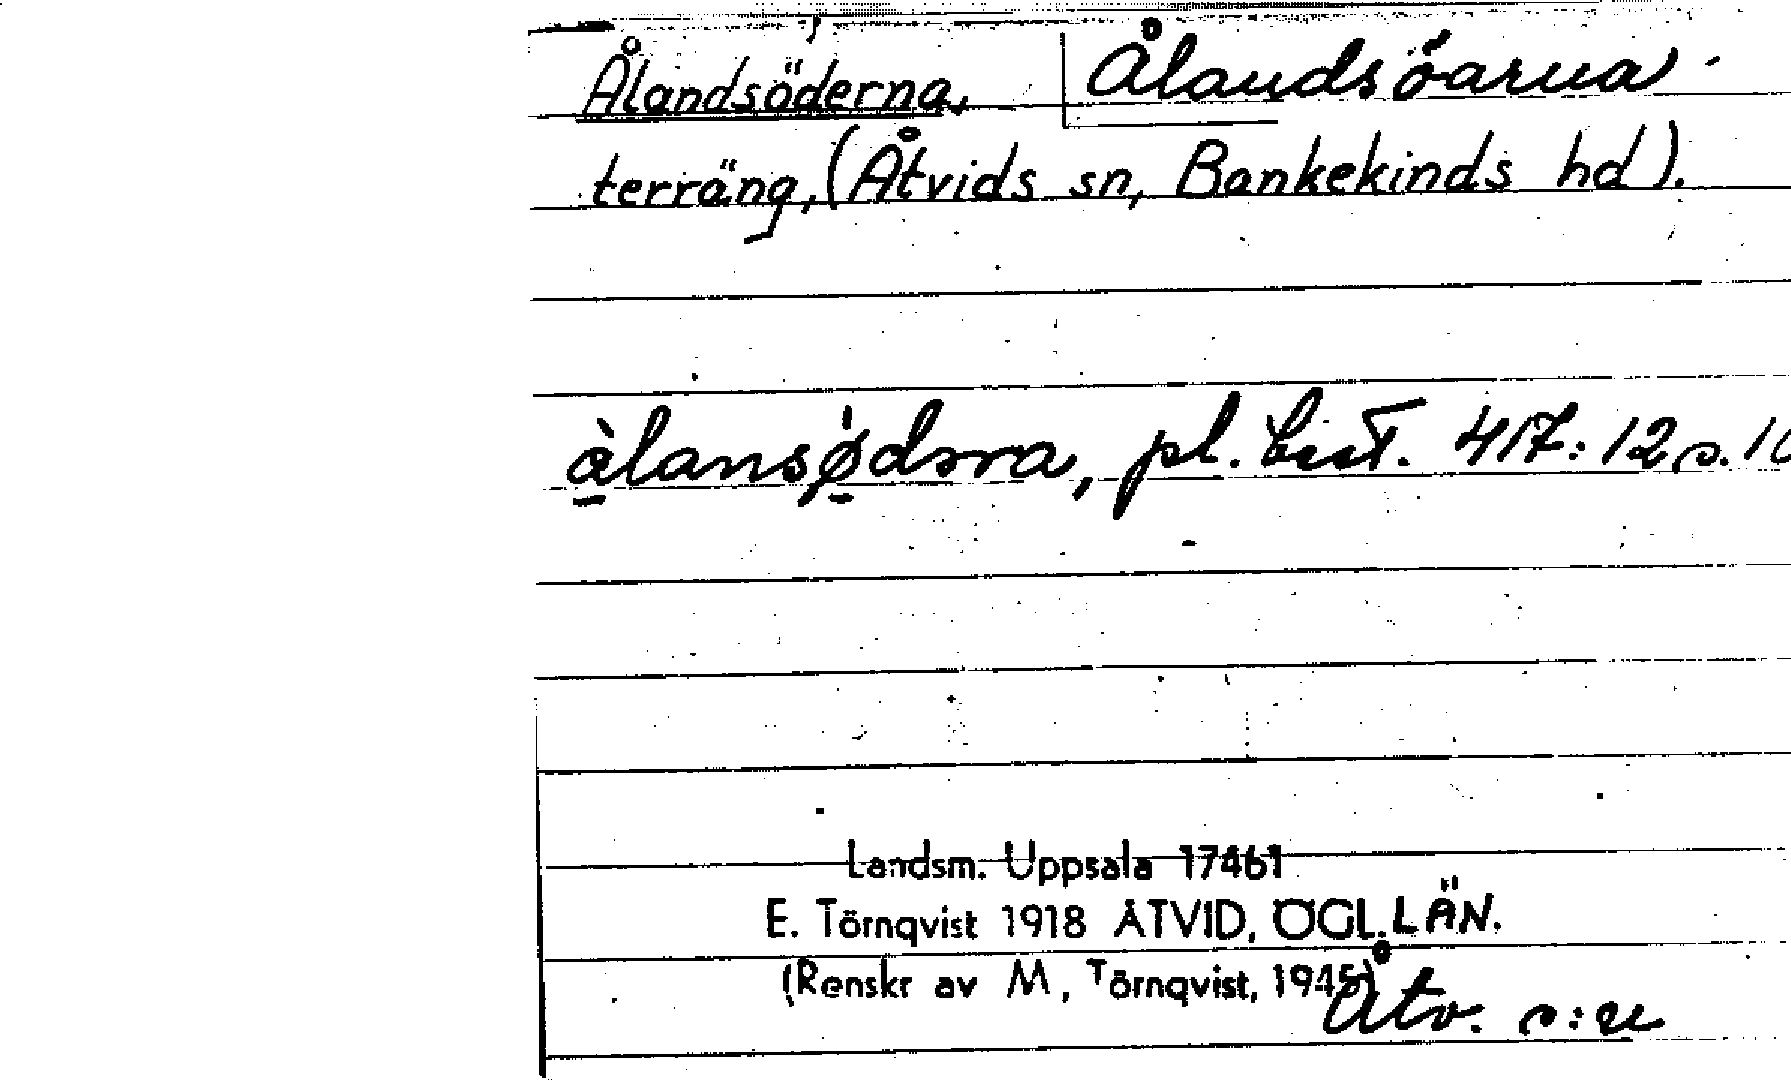 Ålandsöderna, Ålandsöarna
terräng, (Åtvids sn, Bankekinds hd).
àlansø̀dəra, pl. best. 417:12 s. 10
Landsm. Uppsala 17461
E. Törnqvist 1918 ÅTVID, ÖGL. LÄN.
(Renskr av M, Törnqvist, 1945)
Åtv. s:n